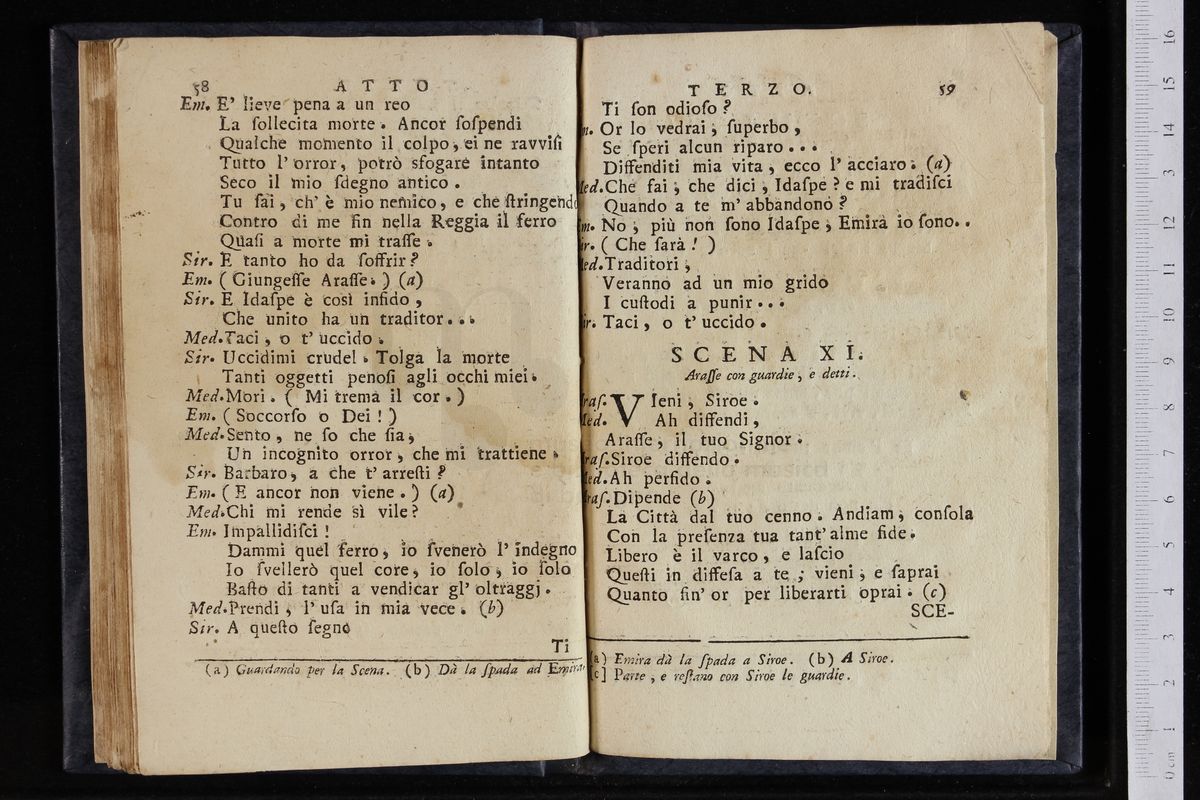 58 ATTO
Em. E' lieve pena a un reo
La ſollecita morte. Ancor ſoſpendi
Qualche momento il colpo, ei ne ravviſi
Tutto l'orror, potrò sfogare intanto
Seco il mio ſdegno antico.
Tu ſai, ch'è mio nemico, e che ſtringendo
Contro di me fin nella Reggia il ferro
Quaſi a morte mi traſſe.
Sir. E tanto ho da ſoffrir?
Em. (Giungeſſe Araſſe.) (a)
Sir. E Idaſpe è così infido,
Che unito ha un traditor...
Med. Taci, o t'uccido.
Sir. Uccidimi crudel. Tolga la morte
Tanti oggetti penoſi agli occhi miei.
Med. Mori. (Mi trema il cor.)
Em. (Soccorſo o Dei!)
Med. Sento, ne ſo che ſia,
Un incognito orror, che mi trattiene.
Sir. Barbaro, a che t'arreſti?
Em. (E ancor non viene.) (a)
Med. Chi mi rende sì vile?
Em. Impallidiſci!
Dammi quel ferro, io ſvenerò l'indegno
Io ſvellerò quel core, io ſolo, io ſolo
Baſto di tanti a vendicar gl'oltraggj.
Med. Prendi, l'uſa in mia vece. (b)
Sir. A queſto ſegno
Ti
(a) Guardando per la Scena. (b) Dà la ſpada ad Emira.
TERZO. 59
Ti ſon odioſo?
m. Or lo vedrai, ſuperbo,
Se ſperi alcun riparo...
Diffenditi mia vita, ecco l'acciaro. (a)
Med. Che fai, che dici, Idaſpe? e mi tradiſci
Quando a te m'abbandonò?
m. No, più non ſono Idaſpe, Emira io ſono..
ir. (Che ſarà!)
Med. Traditori,
Veranno ad un mio grido
I cuſtodi a punir...
ir. Taci, o t'uccido.
SCENA XI.
Araſſe con guardie, e detti.
raſ. VIeni, Siroe.
Med. Ah diffendi,
Araſſe, il tuo Signor.
raſ. Siroe diffendo.
Med. Ah perfido.
raſ. Dipende (b)
La Città dal tuo cenno. Andiam, conſola
Con la preſenza tua tant'alme fide.
Libero è il varco, e laſcio
Queſti in diffeſa a te; vieni, e ſaprai
Quanto fin'or per liberarti oprai. (c)
SCE-
(a) Emira dà la ſpada a Siroe. (b) A Siroe.
[c] Parte, e reſtano con Siroe le guardie.
0 cm 1 2 3 4 5 6 7 8 9 10 11 12 13 14 15 16